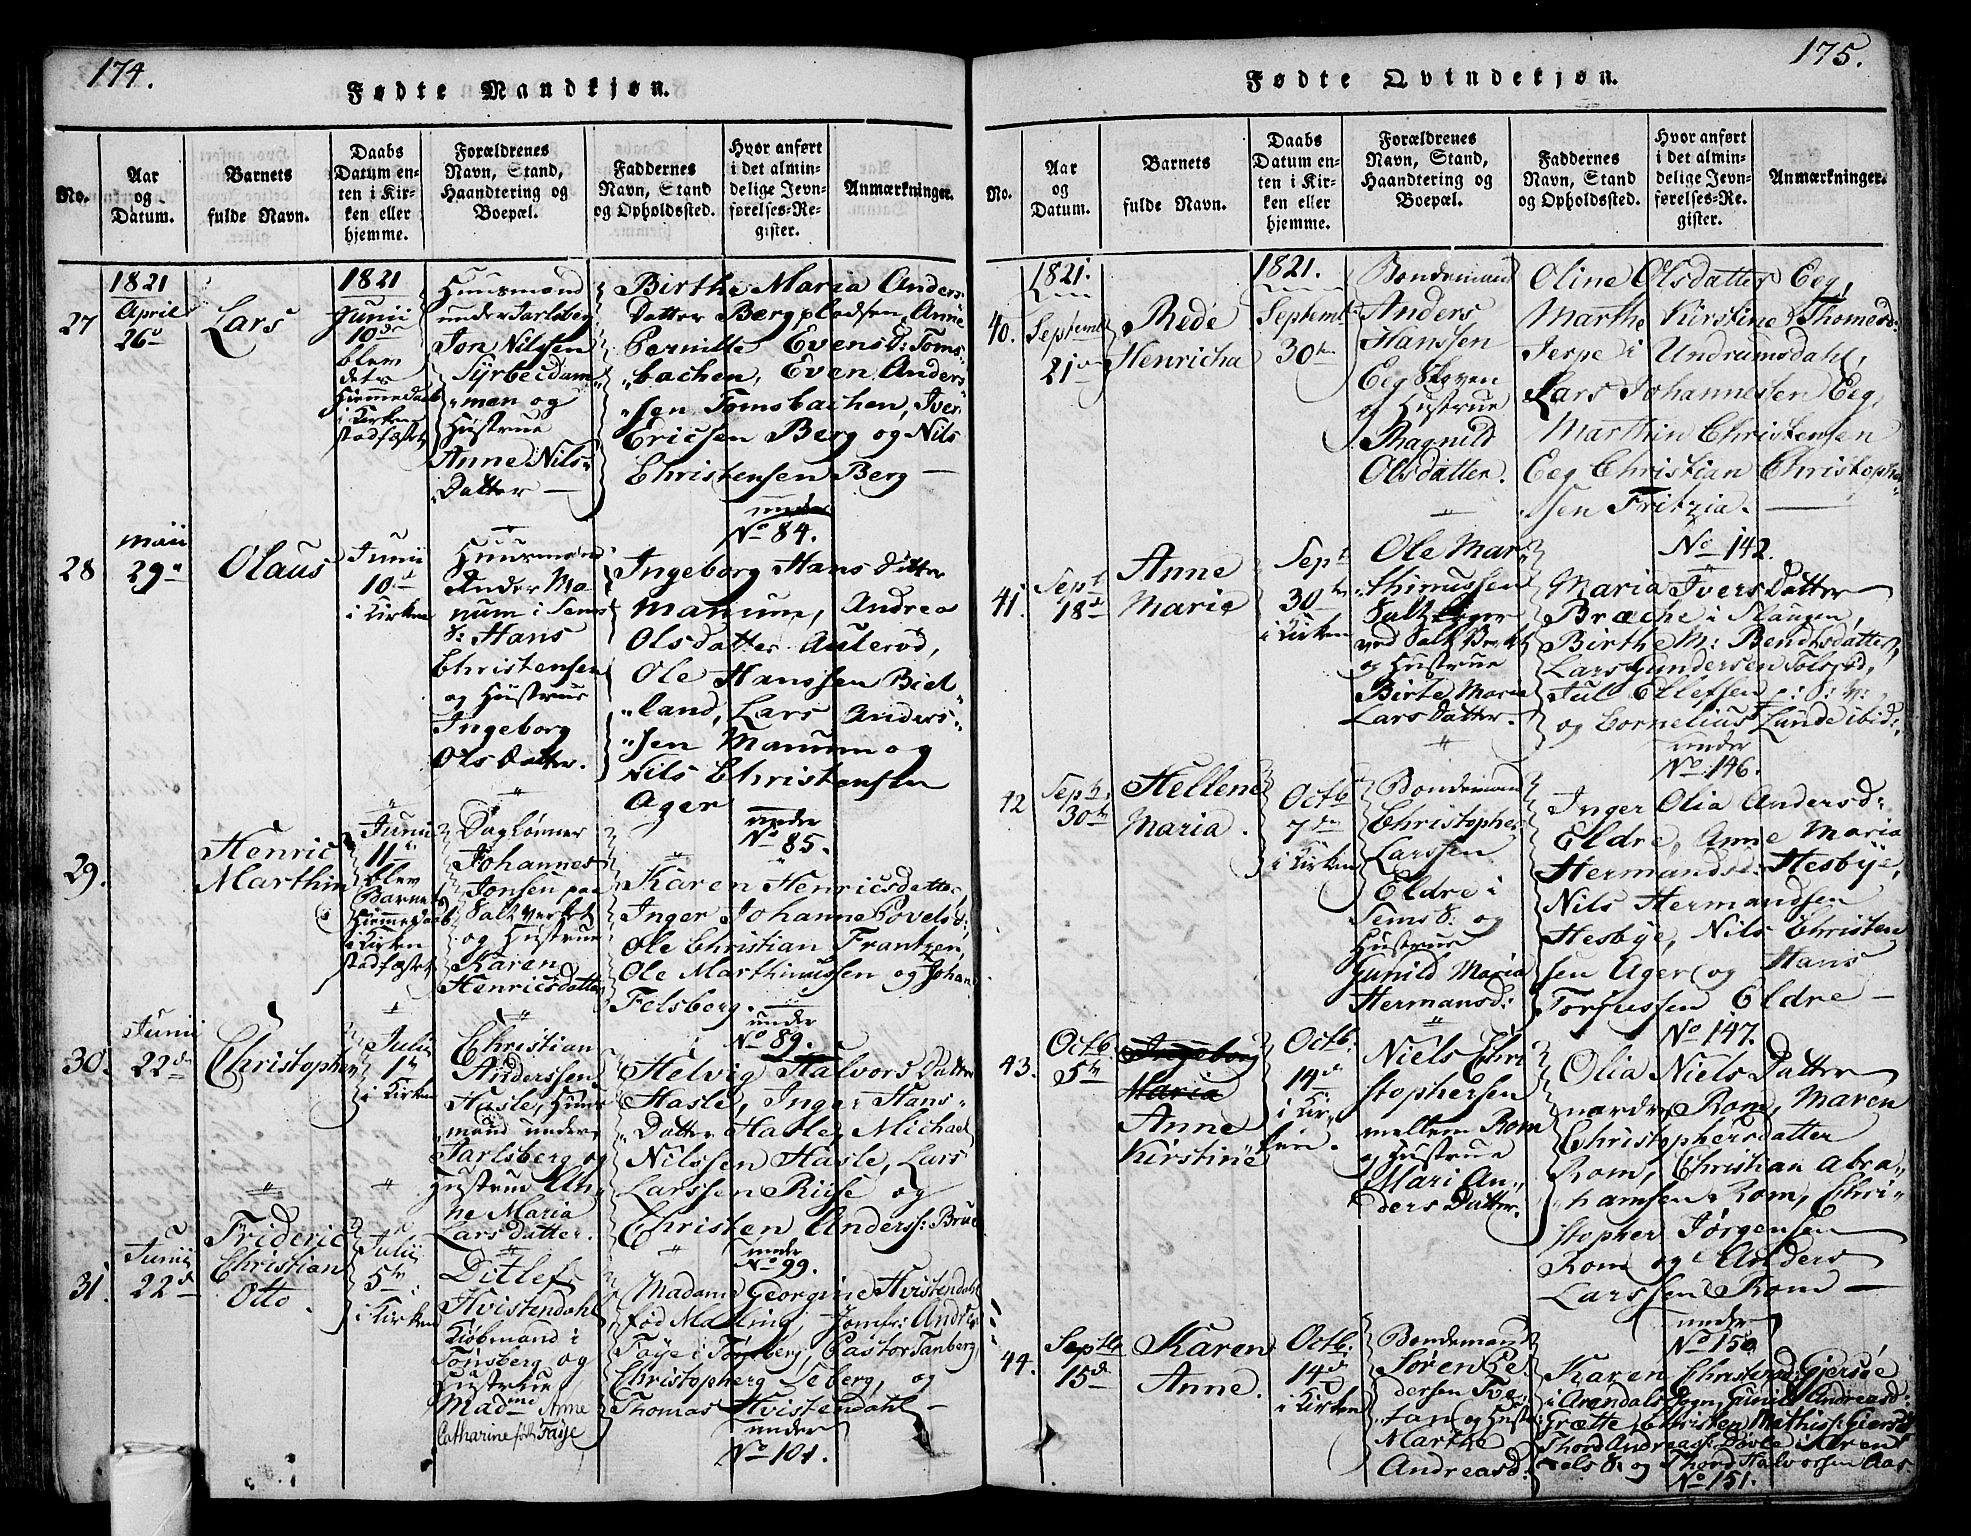 174.
Fødte Mandkjøn.
No.
Aar
og
Datum.
Barnets
fulde Navn.
Daabs
Datum en-
ten i Kir-
ken eller
hjemme.
Forældrenes
Navn, Stand,
Haandtering og
Boepæl.
Faddernes
Navn, Stand
og Opholdssted.
Hvor anført
i det almin-
delige Jevn-
førelses-Re-
gister.
Anmærkninger.
27
1821
April
26d
Lars
1821
Junii
10de
blev
dets
Hiemmedaab
i Kirken
stadfæstet
Huusmand
under Jarlsberg
Jon Nilsen
og
Hustrue
Anne Nils-
Datter —
Birthe Maria Anders
Datter Bergpladsen, Anne
Pernille Evensd: Toms-
bachen, Even Anders
Sen Tomsbachen, Iver
Ericsen Berg og Nils
Christensen Berg —
under
No 84.
28
Maii
29d
Olaus
Junii
10d
i Kirken
Huusmand
under Ma-
num i Sems
S: Hans
Christensen
og Hustrue
Ingeborg
OlsDatter.
Ingeborg Hans Datter
Manum, Andrea
Olsdatter Aulerød,
Ole Hanssen Biel-
land, Lars Anders-
Sen Manum og
Nils Christensen
Ager
under
No 85.
29.
Henric
Marthin
Junii
11te
blev
Barnets
Hiemmedaab
i Kirken
stadfæstet
Daglønner
Johannes
Jonsen paa
Saltverket
og Hustrue
Karen
Henricsdatter
Karen Henricsdatter,
Inger Johanne Povelsd:,
Ole Christian Frantzen,
Ole Marthinussen og Johan
Felsberg.
under
No 89.
30.
Junii
22de
Christopher
Julii
1te
i Kirken
Christian
Anderssen
Hasle, Huus-
mand under
Jarlsberg og
Hustrue An-
ne Maria
LarsDatter.
Helvig Halvors Datter
Hasle, Inger Hans-
Datter Hasle, Michael
Nilssen Hasle, Lars
Larssen Riise og
Christen Anderss: Brue
under
No 99.
31.
Junii
22d
Frideric
Christian
Otto.
Julii
5te
i Kirken
Ditlef
Hvistendahl
Kiøbmand i
Tønsberg og
Hustrue
Madme Anne
Catharine født Faye
Madam Georgine Hvistendahl
fød Malling, Jomfr: Andrea
Faye i Tønsberg, Pastor Tanberg
Christopherg Deberg, og
Thomas Hvistendahl —
under
No 101.
175.
Fødte Qvindekjøn.
No.
Aar
og
Datum.
Barnets
fulde Navn.
Daabs
Datum en-
ten i Kir-
ken eller
hjemme.
Forældrenes
Navn, Stand,
Haandtering og
Boepæl.
Faddernes
Navn, Stand
og Opholdssted.
Hvor anført
i det almin-
delige Jevn-
førelses-Re-
gister.
Anmærkninger.
40.
1821.
Septembr
21de
Rede
Henricha
1821.
Septembr
30te
Bondemand
Anders
Hanssen
Eeg Skoven
og Hustrue
Ragnild
Olsdatter.
Oline Olsdatter Eeg,
Marthe Kirstine Thomesd:
Jerpe i Undrumsdahl,
Lars Johannessen Eeg,
Marthin Christensen
Eeg Christian Christopher-
Sen Fritzia. —
No 142.
41.
Sept
18d
Anne
Marie
Sept
30te
i Kirken
Ole Mar-
thinussen
ved Salt Verket
og Hustrue
Birte Marie
LarsDatter.
Maria Ivers Datter
Bræche i Slaugen,
Birthe M: BendtsDatter,
Lars Gundersen Tolsrød,
Jul Ellefsen
og Cornelius Lunde ibid:
under
No 146.
42
Septbr
30te
Hellene
Maria.
Octb
7de
i Kirken
Bondemand
Christopher
Larssen
Eldre i
Sems S: og
Hustrue
Gunild Maria
Hermansd:
Inger Olia Andersd:
Eldre, Anne Maria
Hermandsd: Hesbye,
Nils Hermandsen
Hesbye, Nils Christen
sen Ager og Hans
Torfussen Eldre —
No 147.
43.
Octb
5te
Ingeborg
Maria
Anne
Kirstine
Octb:
14de
i Kir-
ken.
Niels Chri
stophersen
mellem Rom
og Hustrue
Mari An-
ders Datter.
Olia Niels Datter
nordre Rom, Maren
Christophersdatter
Rom, Christian Abra-
hamsen Rom, Chri-
stopher Jørgensen
Rom og Anders
Larssen Rom —
under
No 150
44.
Septb
15d
Karen
Anne.
Octb:
14d
i Kirken
Bondemand
Søren Pe
dersen Tve-
tan og Hustr
Marthe
Andreasd:
Karen Christensd: Gjersøe
i Arendals Sogn, Gunild Andreasd:
Grætte, Christen Mathiss: Giersøe
Thord Andreass: Døvle i Aren-
dals S: og Thord Halvorsen Aas.
No 151.